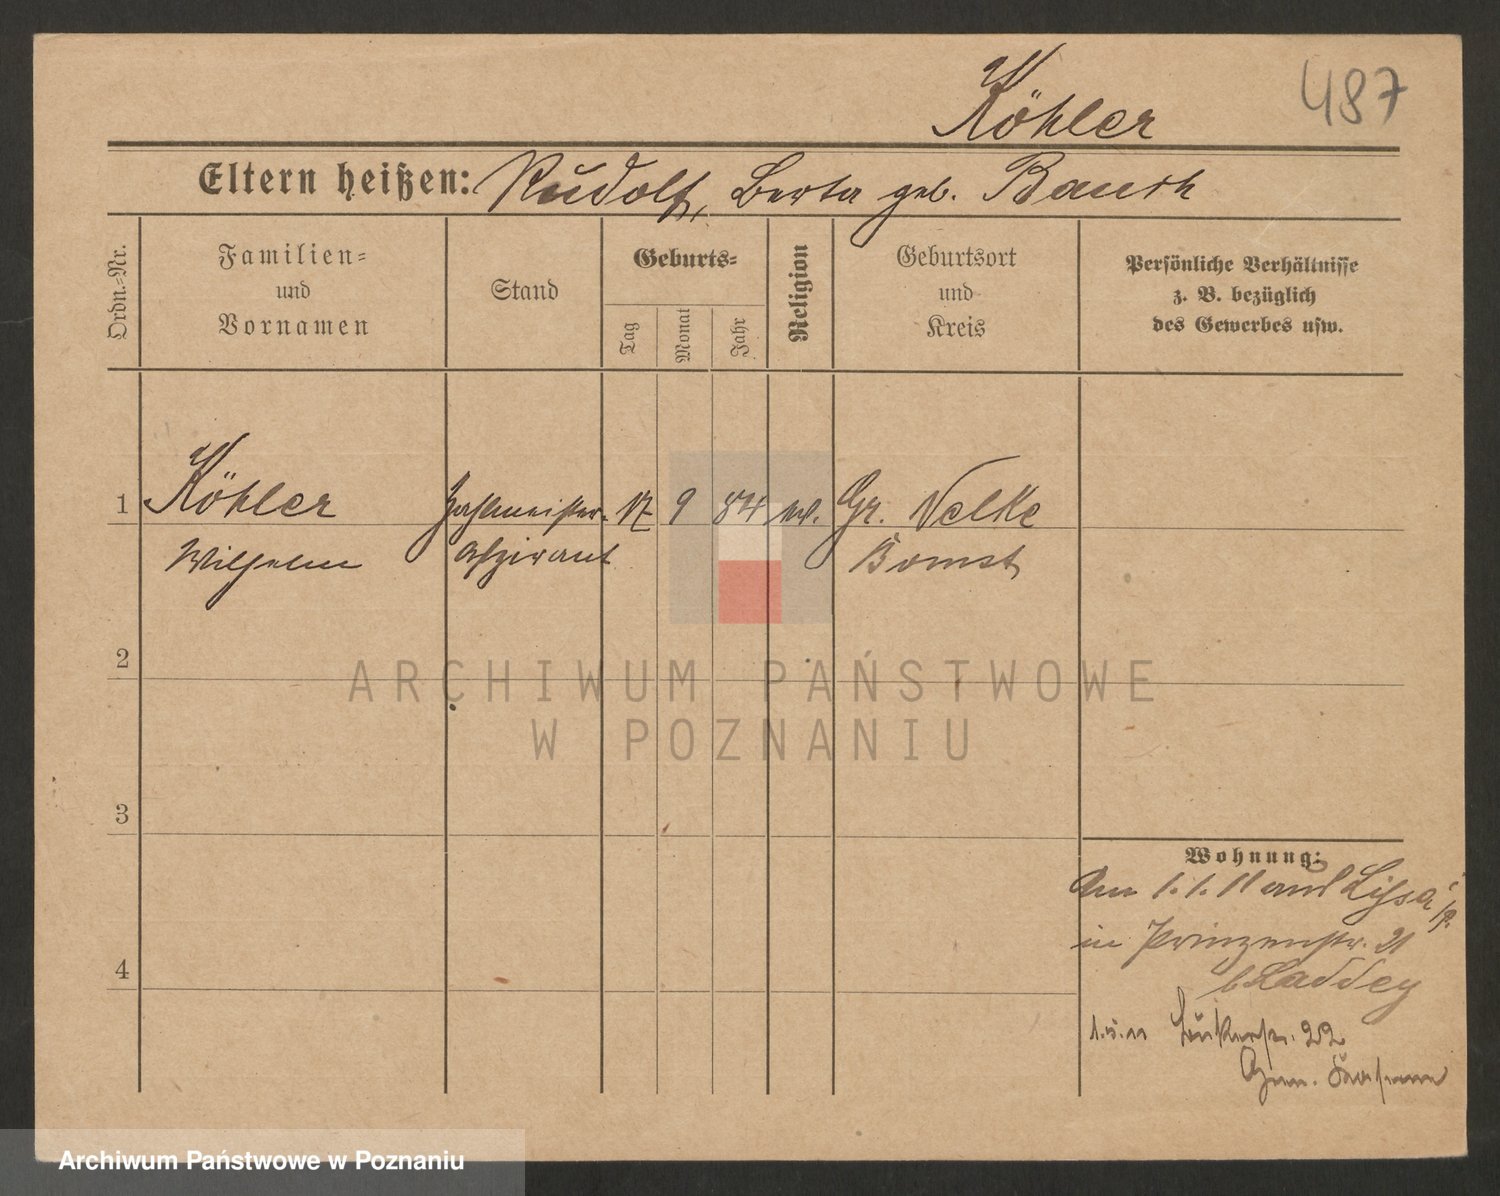 487
Köhler
Eltern heißen: Rudolf, Berta geb.
Ordn.=Nr.
Familien=
und
Vornamen
Stand
Geburts=
Tag
Monat
Jahr
Religion
Geburtsort
und
Kreis
Persönliche Verhältnisse
z. B. bezüglich
des Gewerbes usw.
1 Köhler Zahlmeister- 17 9 84 Gr. Nelke
Wilhelm Aspirant Bomst
2
3
4
Wohnung:
Am 1.1.11 aus Lissa
in Prinzenstr. 21
b.
1.5.11 22
ARCHIWUM PAŃSTWOWE
W POZNANIU
Archiwum Państwowe w Poznaniu